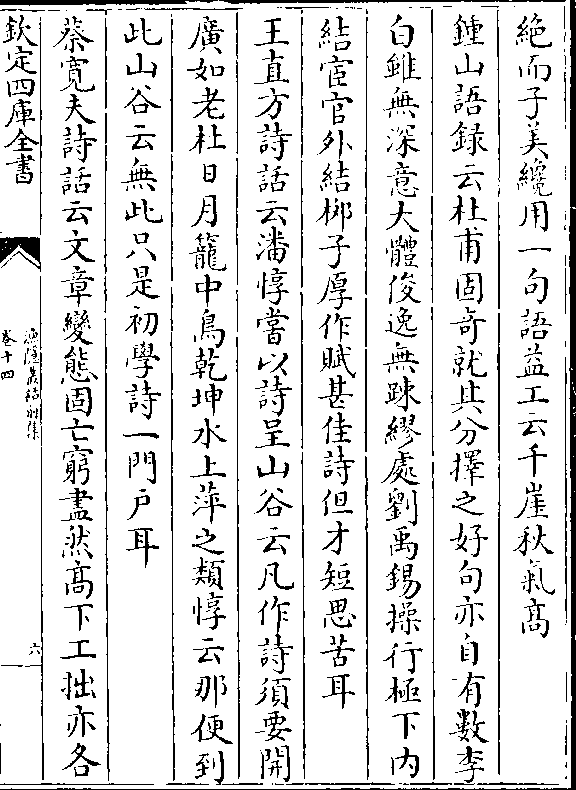 絶而子美纔用一句語益工云千崖秋氣髙
鍾山語録云杜甫固竒就其分擇之好句亦自有數李
白雖無深意大體俊逸無踈繆處劉禹錫操行極下内
結宦官外結栁子厚作賦甚佳詩但才短思苦耳
王直方詩話云潘惇嘗以詩呈山谷云凡作詩須要開
廣如老杜日月籠中鳥乾坤水上萍之類惇云那便到
此山谷云無此只是初學詩一門户耳
蔡寛夫詩話云文章變態固亡窮盡然髙下工拙亦各
欽定四庫全書
漁隱叢話前集
卷十四
六